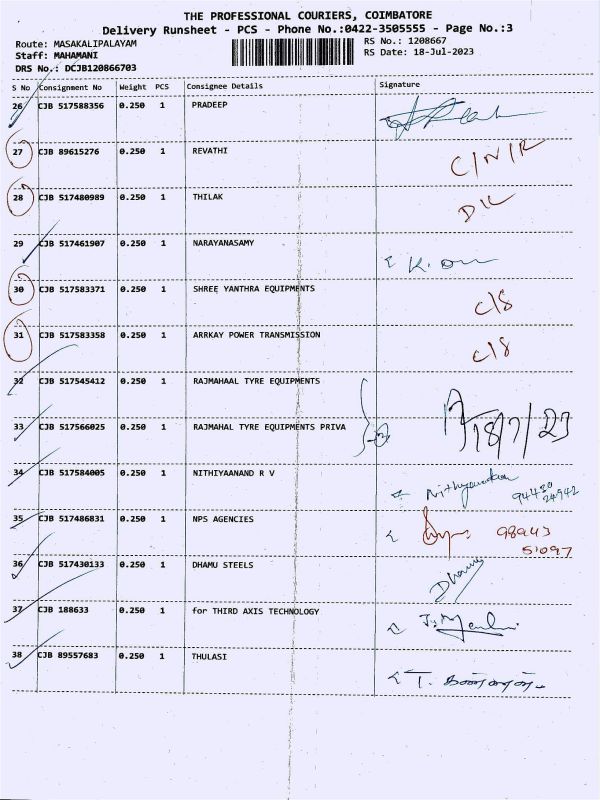 THE PROFESSIONAL COURIERS, COIMBATORE
Delivery Runsheet - PCS - Phone No.:0422-3505555 - Page No.:3
Route: MASAKALIPALAYAM RS No.: 1208667
Staff: MAHAMANI RS Date: 18-Jul-2023
DRS No.: DCJB120866703
S No Consignment No Weight PCS Consignee Details Signature
26 CJB 517588356 0.250 1 PRADEEP
27 CJB 89615276 0.250 1 REVATHI C/N/R
28 CJB 517480989 0.250 1 THILAK DL
29 CJB 517461907 0.250 1 NARAYANASAMY
30 CJB 517583371 0.250 1 SHREE YANTHRA EQUIPMENTS C/S
31 CJB 517583358 0.250 1 ARRKAY POWER TRANSMISSION C/S
32 CJB 517545412 0.250 1 RAJMAHAAL TYRE EQUIPMENTS
33 CJB 517566025 0.250 1 RAJMAHAL TYRE EQUIPMENTS PRIVA 18/7/23
34 CJB 517584005 0.250 1 NITHIYAANAND R V 94420
24942
35 CJB 517486831 0.250 1 NPS AGENCIES 98943
51097
36 CJB 517430133 0.250 1 DHAMU STEELS
37 CJB 188633 0.250 1 for THIRD AXIS TECHNOLOGY
38 CJB 89557683 0.250 1 THULASI T.